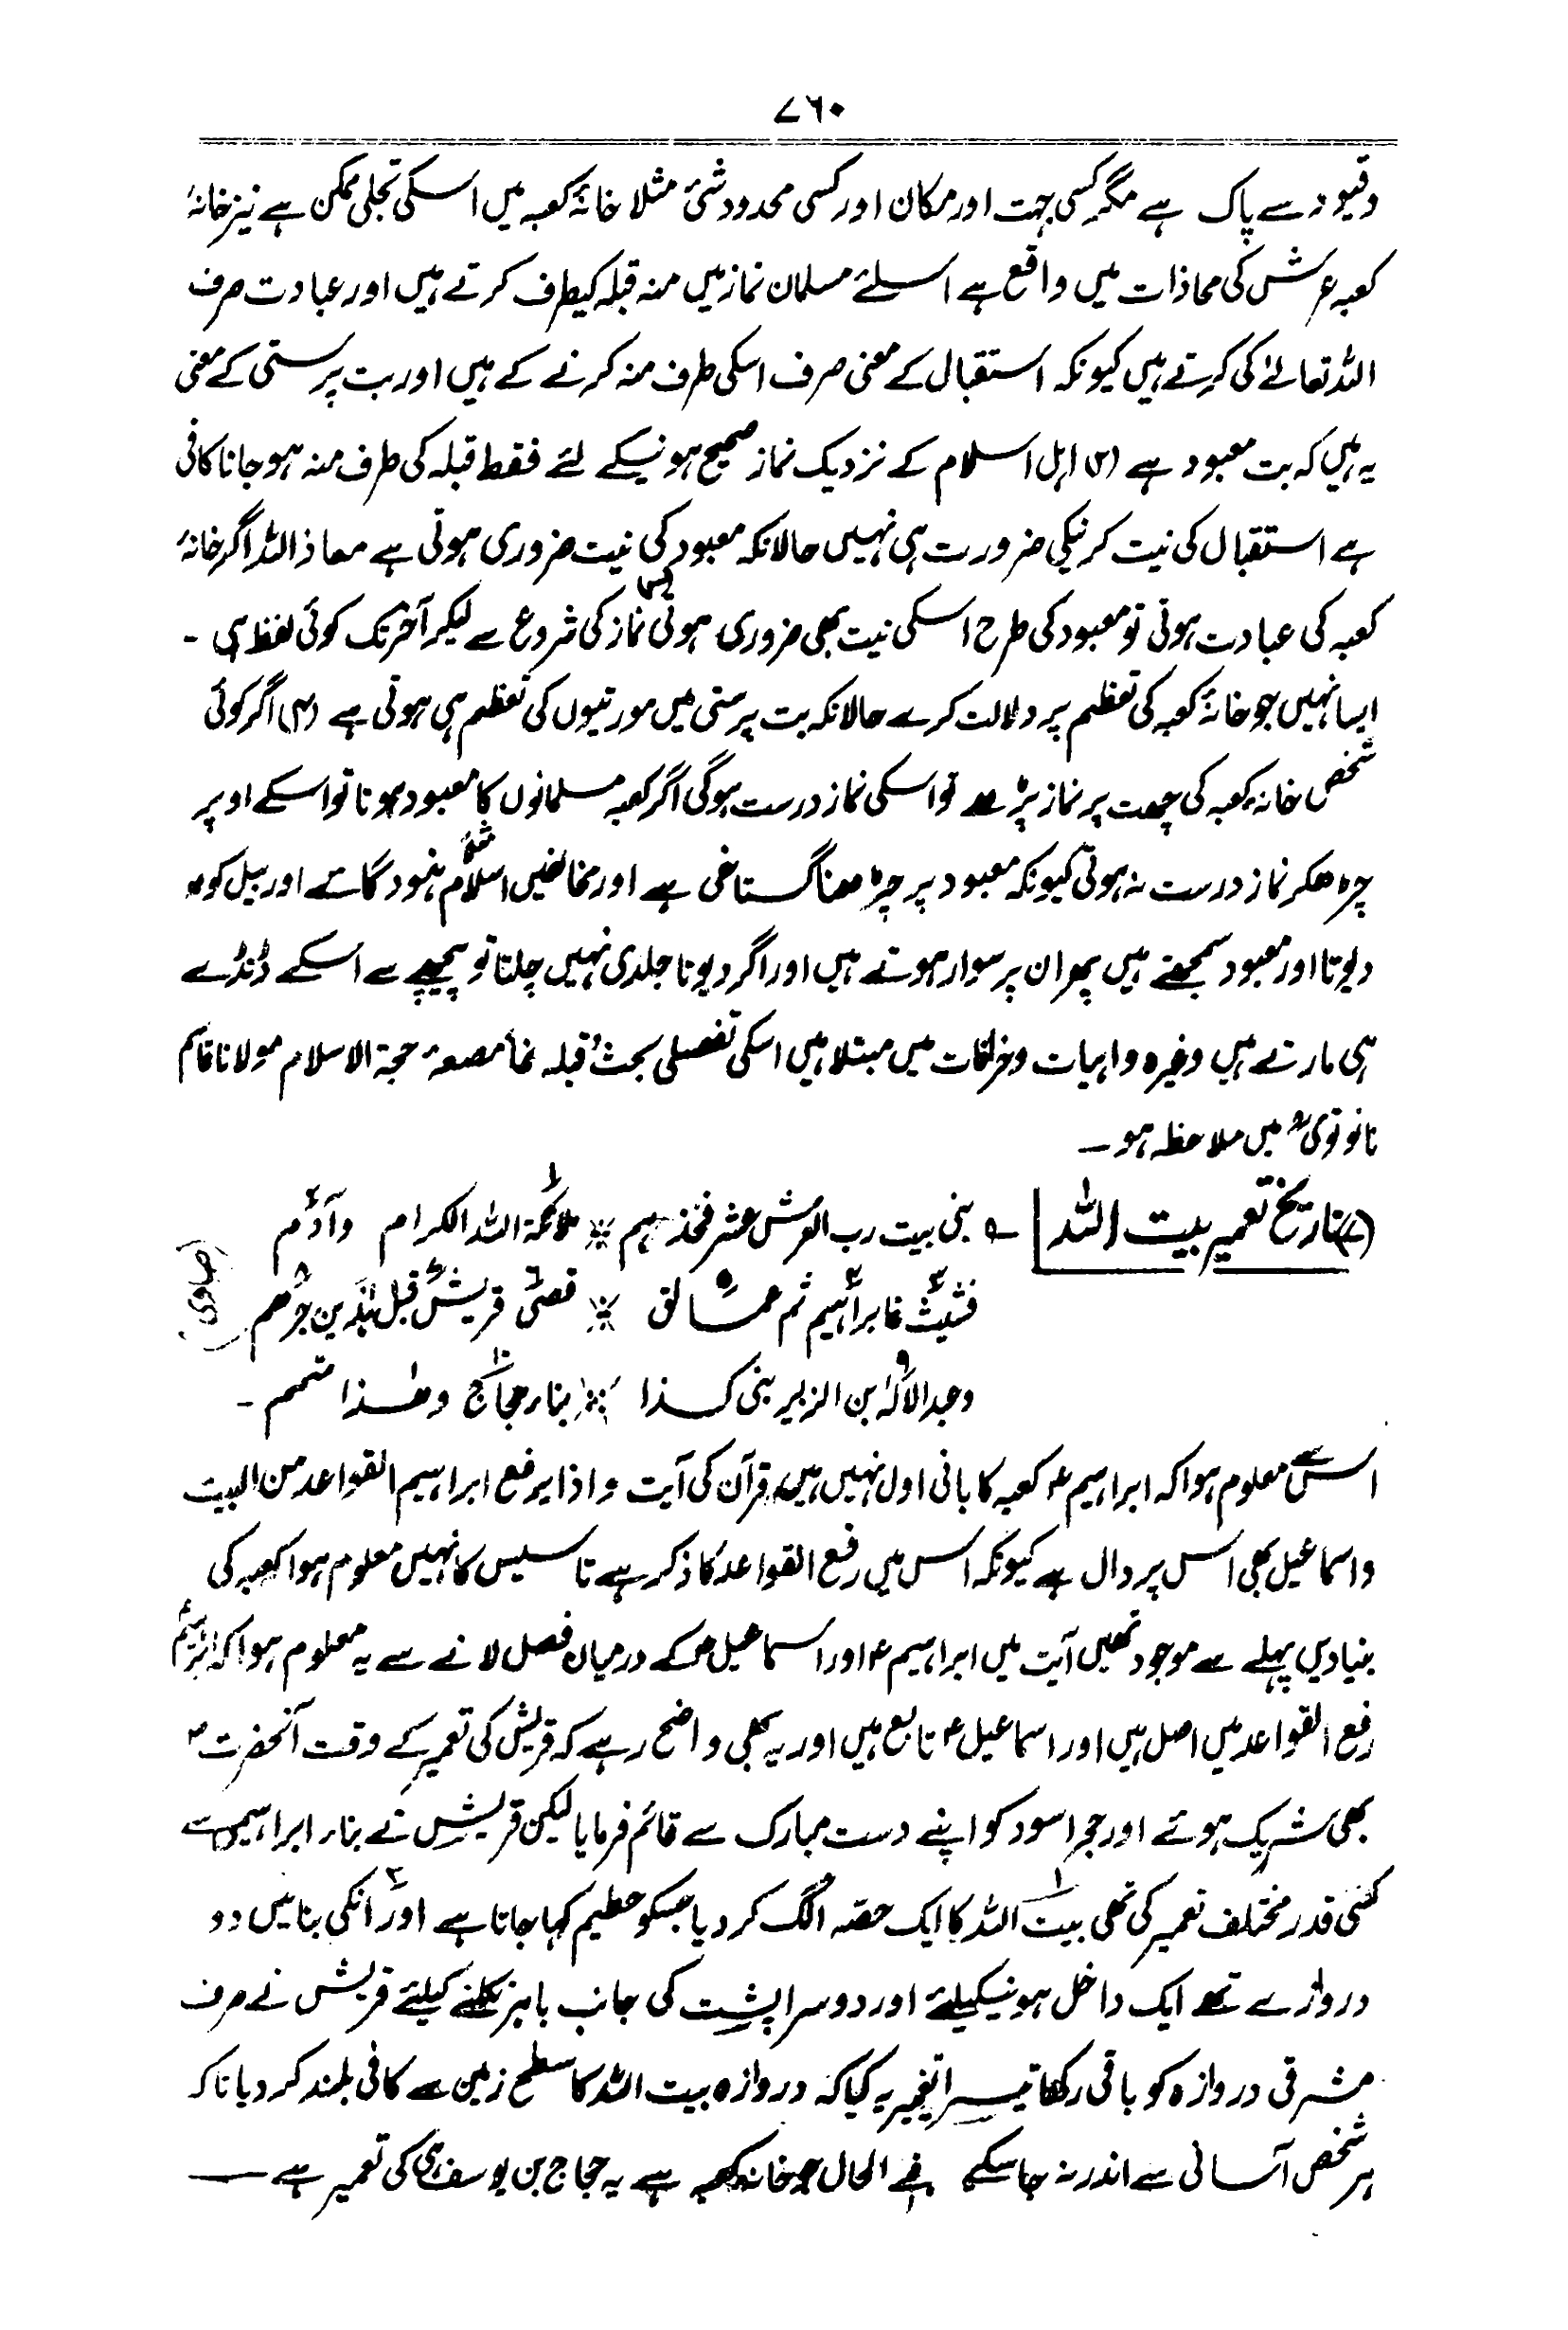 ۷۶۰
وقیود سے پاک ہے مگر کسی جہت اور مکان اور کسی محدود شئ مثلا خانۂ کعبہ میں اسکی تجلی ممکن ہے نیز خانۂ
کعبہ عرش کی محاذات میں واقع ہے اسلئے مسلمان نماز میں منہ قبلہ کیطرف کرتے ہیں اور عبادت صرف
اللہ تعالےٰ کی کرتے ہیں کیونکہ استقبال کے معنی صرف اسکی طرف منہ کرنے کے ہیں اور بت پرستی کے معنی
یہ ہیں کہ بت معبود ہے (۳) اہل اسلام کے نزدیک نماز صحیح ہونیکے لئے فقط قبلہ کی طرف منہ ہو جانا کافی
ہے استقبال کی نیت کرنیکی ضرورت ہی نہیں حالانکہ معبود کی نیت ضروری ہوتی ہے معاذ اللہ اگر خانۂ
کعبہ کی عبادت ہوتی تو معبود کی طرح اسکی نیت بھی ضروری ہوتی نماز کی شروع سے لیکر آخر تک کوئی لفظ ہی ۔
ایسا نہیں جو خانۂ کعبہ کی تعظیم پر دلالت کرے حالانکہ بت پرستی میں مورتیوں کی تعظیم ہی ہوتی ہے (۴) اگر کوئی
شخص خانہ کعبہ کی چھت پر نماز پڑھے تو اسکی نماز درست ہوگی اگر کعبہ مسلمانوں کا معبود ہوتا تو اسکے اوپر
چڑھکر نماز درست نہ ہوتی کیونکہ معبود پر چڑھنا گستاخی ہے اور مخالفین اسلام مثلاً ہنود گائے اور بیل کو
دیوتا اور معبود سمجھتے ہیں پھر ان پر سوار ہوتے ہیں اور اگر دیوتا جلدی نہیں چلتا تو پیچھے سے اسکے ڈنڈے
ہی مارتے ہیں وغیرہ واہیات وخرافات میں مبتلا ہیں اسکی تفصیلی بحث قبلہ نما مصنفہ حجۃ الاسلام مولانا قاسم
نانوتوی میں ملاحظہ ہو ۔
(۷) تاریخ تعمیر بیت اللہ ؎ بنی بیت رب العرش عشر فخذہم ※ ملائکۃ اللہ الکرام وآدم
فشیث فابراہیم ثم عمالق ※ قصی قریش قبل ہذین جرھم (صاوی)
وعبد الالٰہ بن الزبیر بنی کذا ※ بناء حجاج وھذا متمم ۔
اس سے معلوم ہوا کہ ابراہیمؑ کعبہ کا بانی اول نہیں ہیں، قرآن کی آیت واذ یرفع ابراہیم القواعد من البیت
واسماعیل بھی اس پر دال ہے کیونکہ اس میں رفع القواعد کا ذکر ہے تاسیس کا نہیں معلوم ہوا کعبہ کی
بنیادیں پہلے سے موجود تھیں آیت میں ابراہیمؑ اور اسماعیلؑ کے درمیان فصل لانے سے یہ معلوم ہوا کہ ابراہیمؑ
رفع القواعد میں اصل ہیں اور اسماعیلؑ تابع ہیں اور یہ بھی واضح رہے کہ قریش کی تعمیر کے وقت آنحضرتؐ
بھی شریک ہوئے اور حجر اسود کو اپنے دست مبارک سے قائم فرمایا لیکن قریش نے بناء ابراہیمی سے
کسی قدر مختلف تعمیر کی تھی بیت اللہ کا ایک حصہ الگ کر دیا جسکو حطیم کہا جاتا ہے اور انکی بنا میں دو
دروازے تھے ایک داخل ہونیکیلئے اور دوسرا پشت کی جانب باہر نکلنے کیلئے قریش نے صرف
مشرقی دروازہ کو باقی رکھا تیسرا تغیر یہ کیا کہ دروازہ بیت اللہ کا سطح زمین سے کافی بلند کر دیا تاکہ
ہر شخص آسانی سے اندر نہ جا سکے فی الحال جو خانہ کعبہ ہے یہ حجاج بن یوسف ہی کی تعمیر ہے —